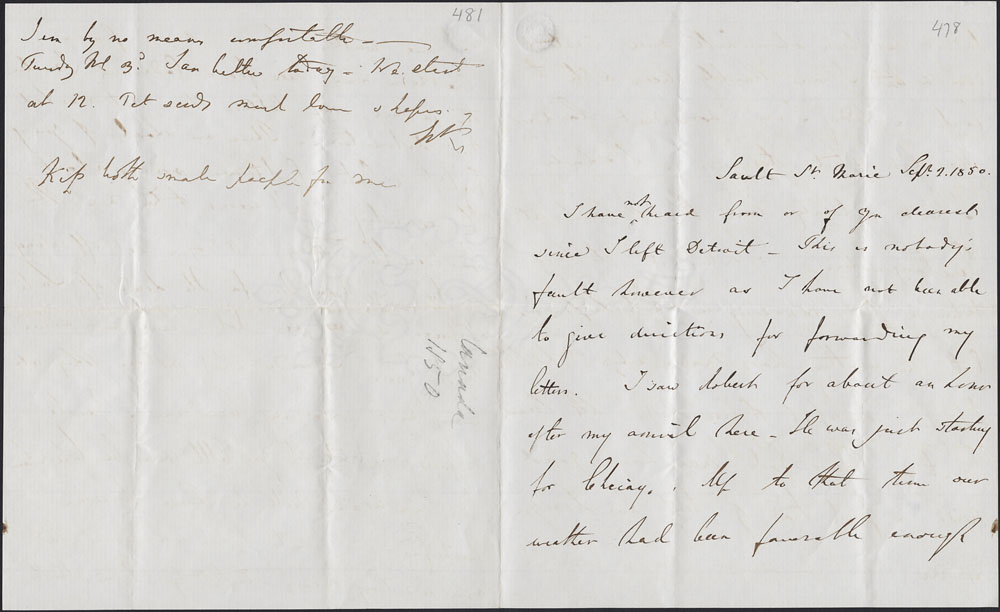 481
I am by no means comfortable —
Tuesday M 3d. I am better today — We start
at 12. Pet sends much love & hopes
Kiss both small people for me
Canada
1850
478
Sault St. Marie Sept. 2. 1850.
I have not heard from or of you dearest
since I left Detroit — This is nobody's
fault however as I have not been able
to give directions for forwarding my
letters. I saw Robert for about an hour
after my arrival here — He was just starting
for Chicago. Up to that time our
weather had been favorable enough